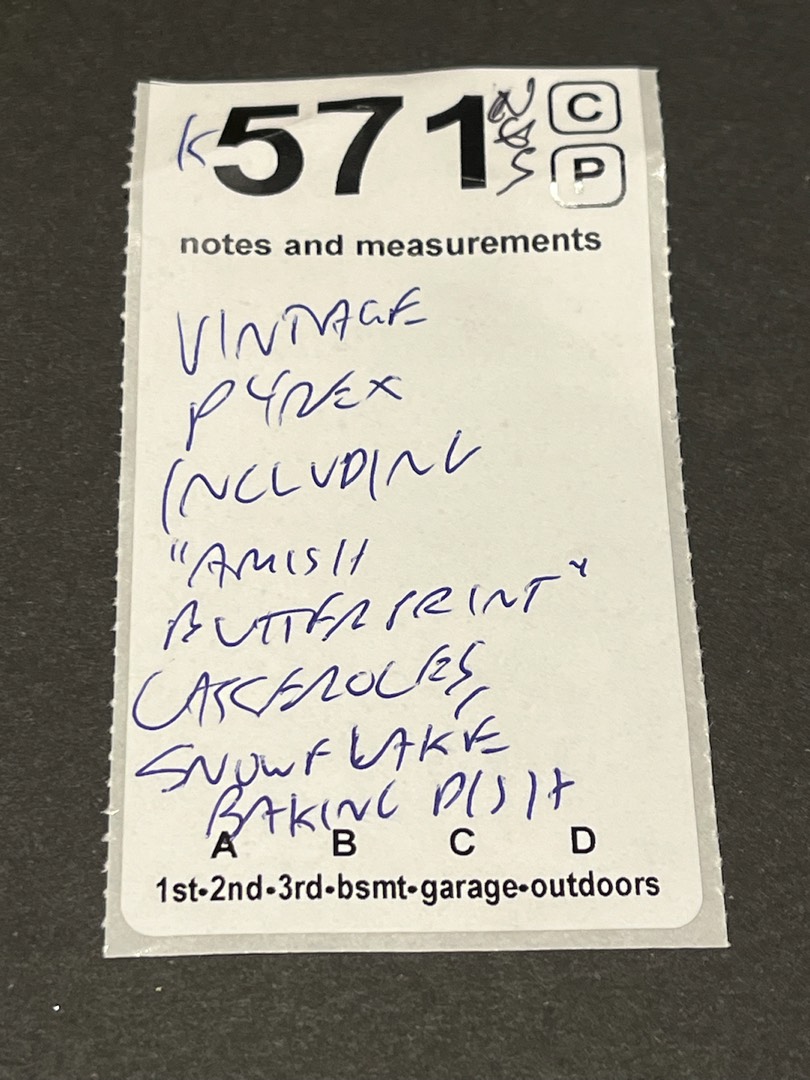 K 571 C
P
notes and measurements
VINTAGE
PYREX
INCLUDING
"AMISH
BUTTERPRINT"
CASCEROLES,
SNOWFLAKE
BAKING DISH
A B C D
1st•2nd•3rd•bsmt•garage•outdoors